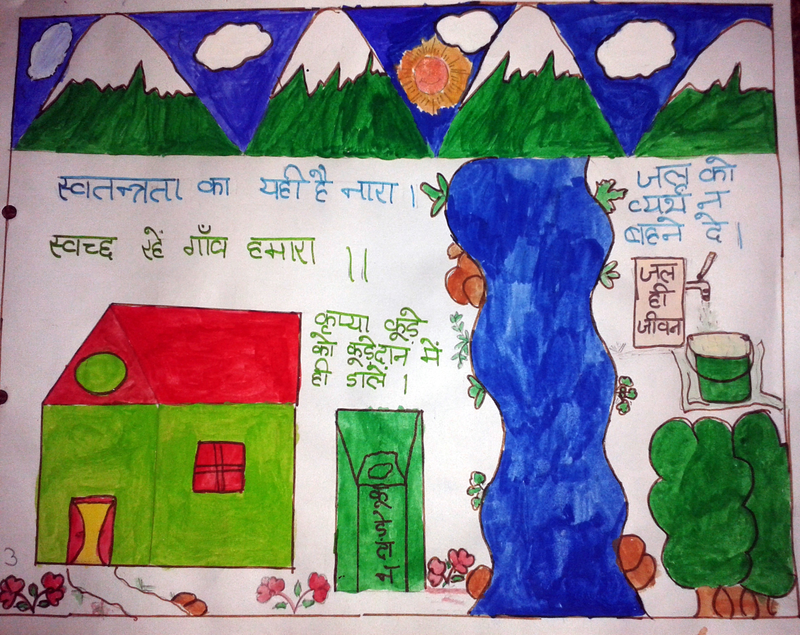 स्वतन्त्रता का यही है नारा।
स्वच्छ रहें गाँव हमारा ॥
जल को
व्यर्थ न
बहने दे।
जल
ही
जीवन
कृप्या कूड़े
को कूड़ेदान में
ही डालें।
3